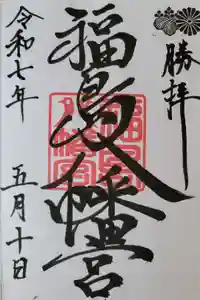 勝拝
福島八幡宮
福島八幡宮
令和七年
五月十日